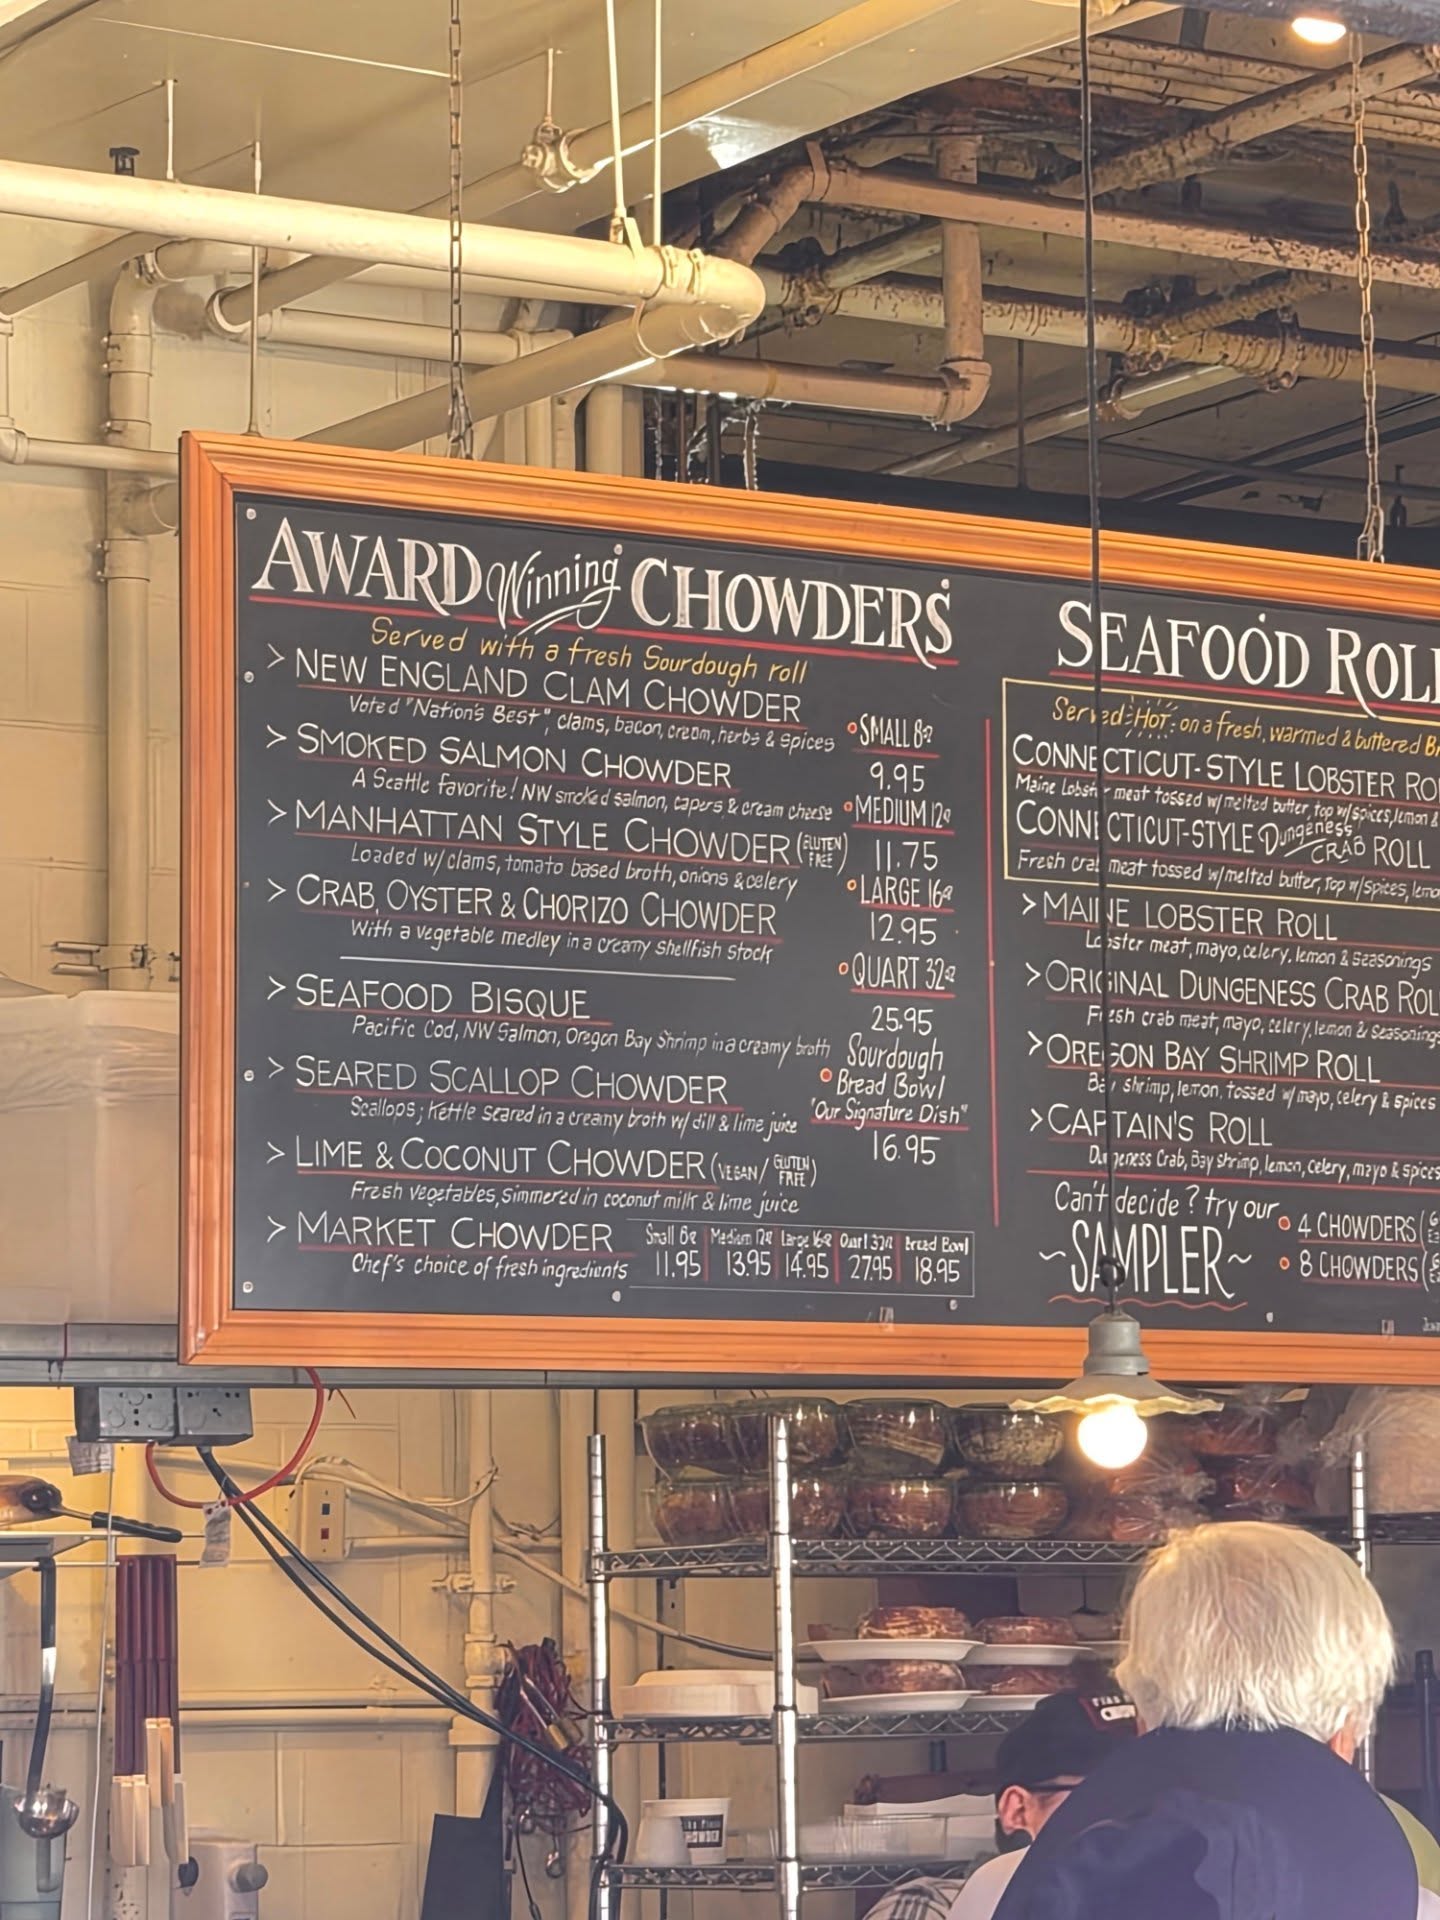 AWARD Winning CHOWDERS
Served with a fresh Sourdough roll
> NEW ENGLAND CLAM CHOWDER
Voted "Nation's Best", clams, bacon, cream, herbs & spices
> SMOKED SALMON CHOWDER
A Seattle favorite! NW smoked salmon, capers & cream cheese
> MANHATTAN STYLE CHOWDER (GLUTEN FREE)
Loaded w/ clams, tomato based broth, onions & celery
> CRAB, OYSTER & CHORIZO CHOWDER
With a vegetable medley in a creamy shellfish stock
> SEAFOOD BISQUE
Pacific Cod, NW Salmon, Oregon Bay Shrimp in a creamy broth
> SEARED SCALLOP CHOWDER
Scallops; Kettle seared in a creamy broth w/ dill & lime juice
> LIME & COCONUT CHOWDER (VEGAN/ GLUTEN FREE)
Fresh vegetables, simmered in coconut milk & lime juice
> MARKET CHOWDER
Chef's choice of fresh ingredients
Small 8oz Medium 12oz Large 16oz Quart 32oz Bread Bowl
11.95 13.95 14.95 27.95 18.95
SMALL 8oz
9.95
MEDIUM 12oz
11.75
LARGE 16oz
12.95
QUART 32oz
25.95
Sourdough
Bread Bowl
"Our Signature Dish"
16.95
SEAFOOD ROLL
Served HOT on a fresh, warmed & buttered
CONNECTICUT-STYLE LOBSTER
Maine Lobster meat tossed w/ melted butter, top w/ spices, lemon &
CONNECTICUT-STYLE Dungeness CRAB ROLL
Fresh crab meat tossed w/ melted butter, top w/ spices,
> MAINE LOBSTER ROLL
Lobster meat, mayo, celery, lemon & seasonings
> ORIGINAL DUNGENESS CRAB ROLL
Fresh crab meat, mayo, celery, lemon & seasonings
> OREGON BAY SHRIMP ROLL
Bay shrimp, lemon, tossed w/ mayo, celery & spices
> CAPTAIN'S ROLL
Dungeness Crab, Bay shrimp, lemon, celery, mayo & spices
Can't decide? try our
~SAMPLER~
4 CHOWDERS
8 CHOWDERS
CHOWDER